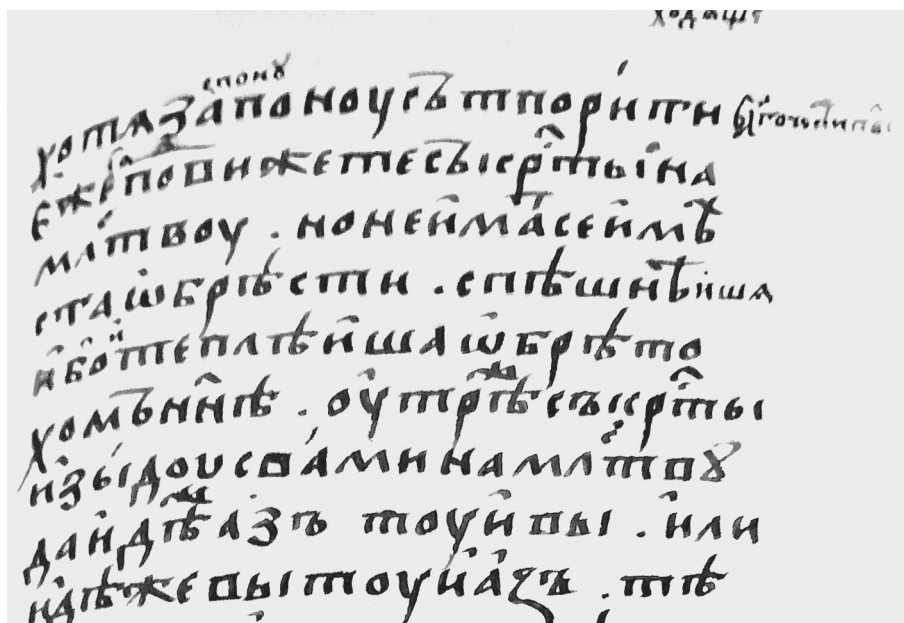 ходѧщїѧ
спонꙋ
хотѧ запоноу сътворити
ѥже подвижете съ кр҃сты на
мл҃твоу . но не имамъ сѥ имъ
ста ѡбрѣсти . спѣшнѣиша
и бо теплѣиша ѡбрѣто
хомъ н҃нѣ . оутрѣ съ кр҃сты
изыдоу с вами на мл҃твꙋ
да идѣ азъ тоу и вы . или
идѣже вы тоу и азъ . тѣ